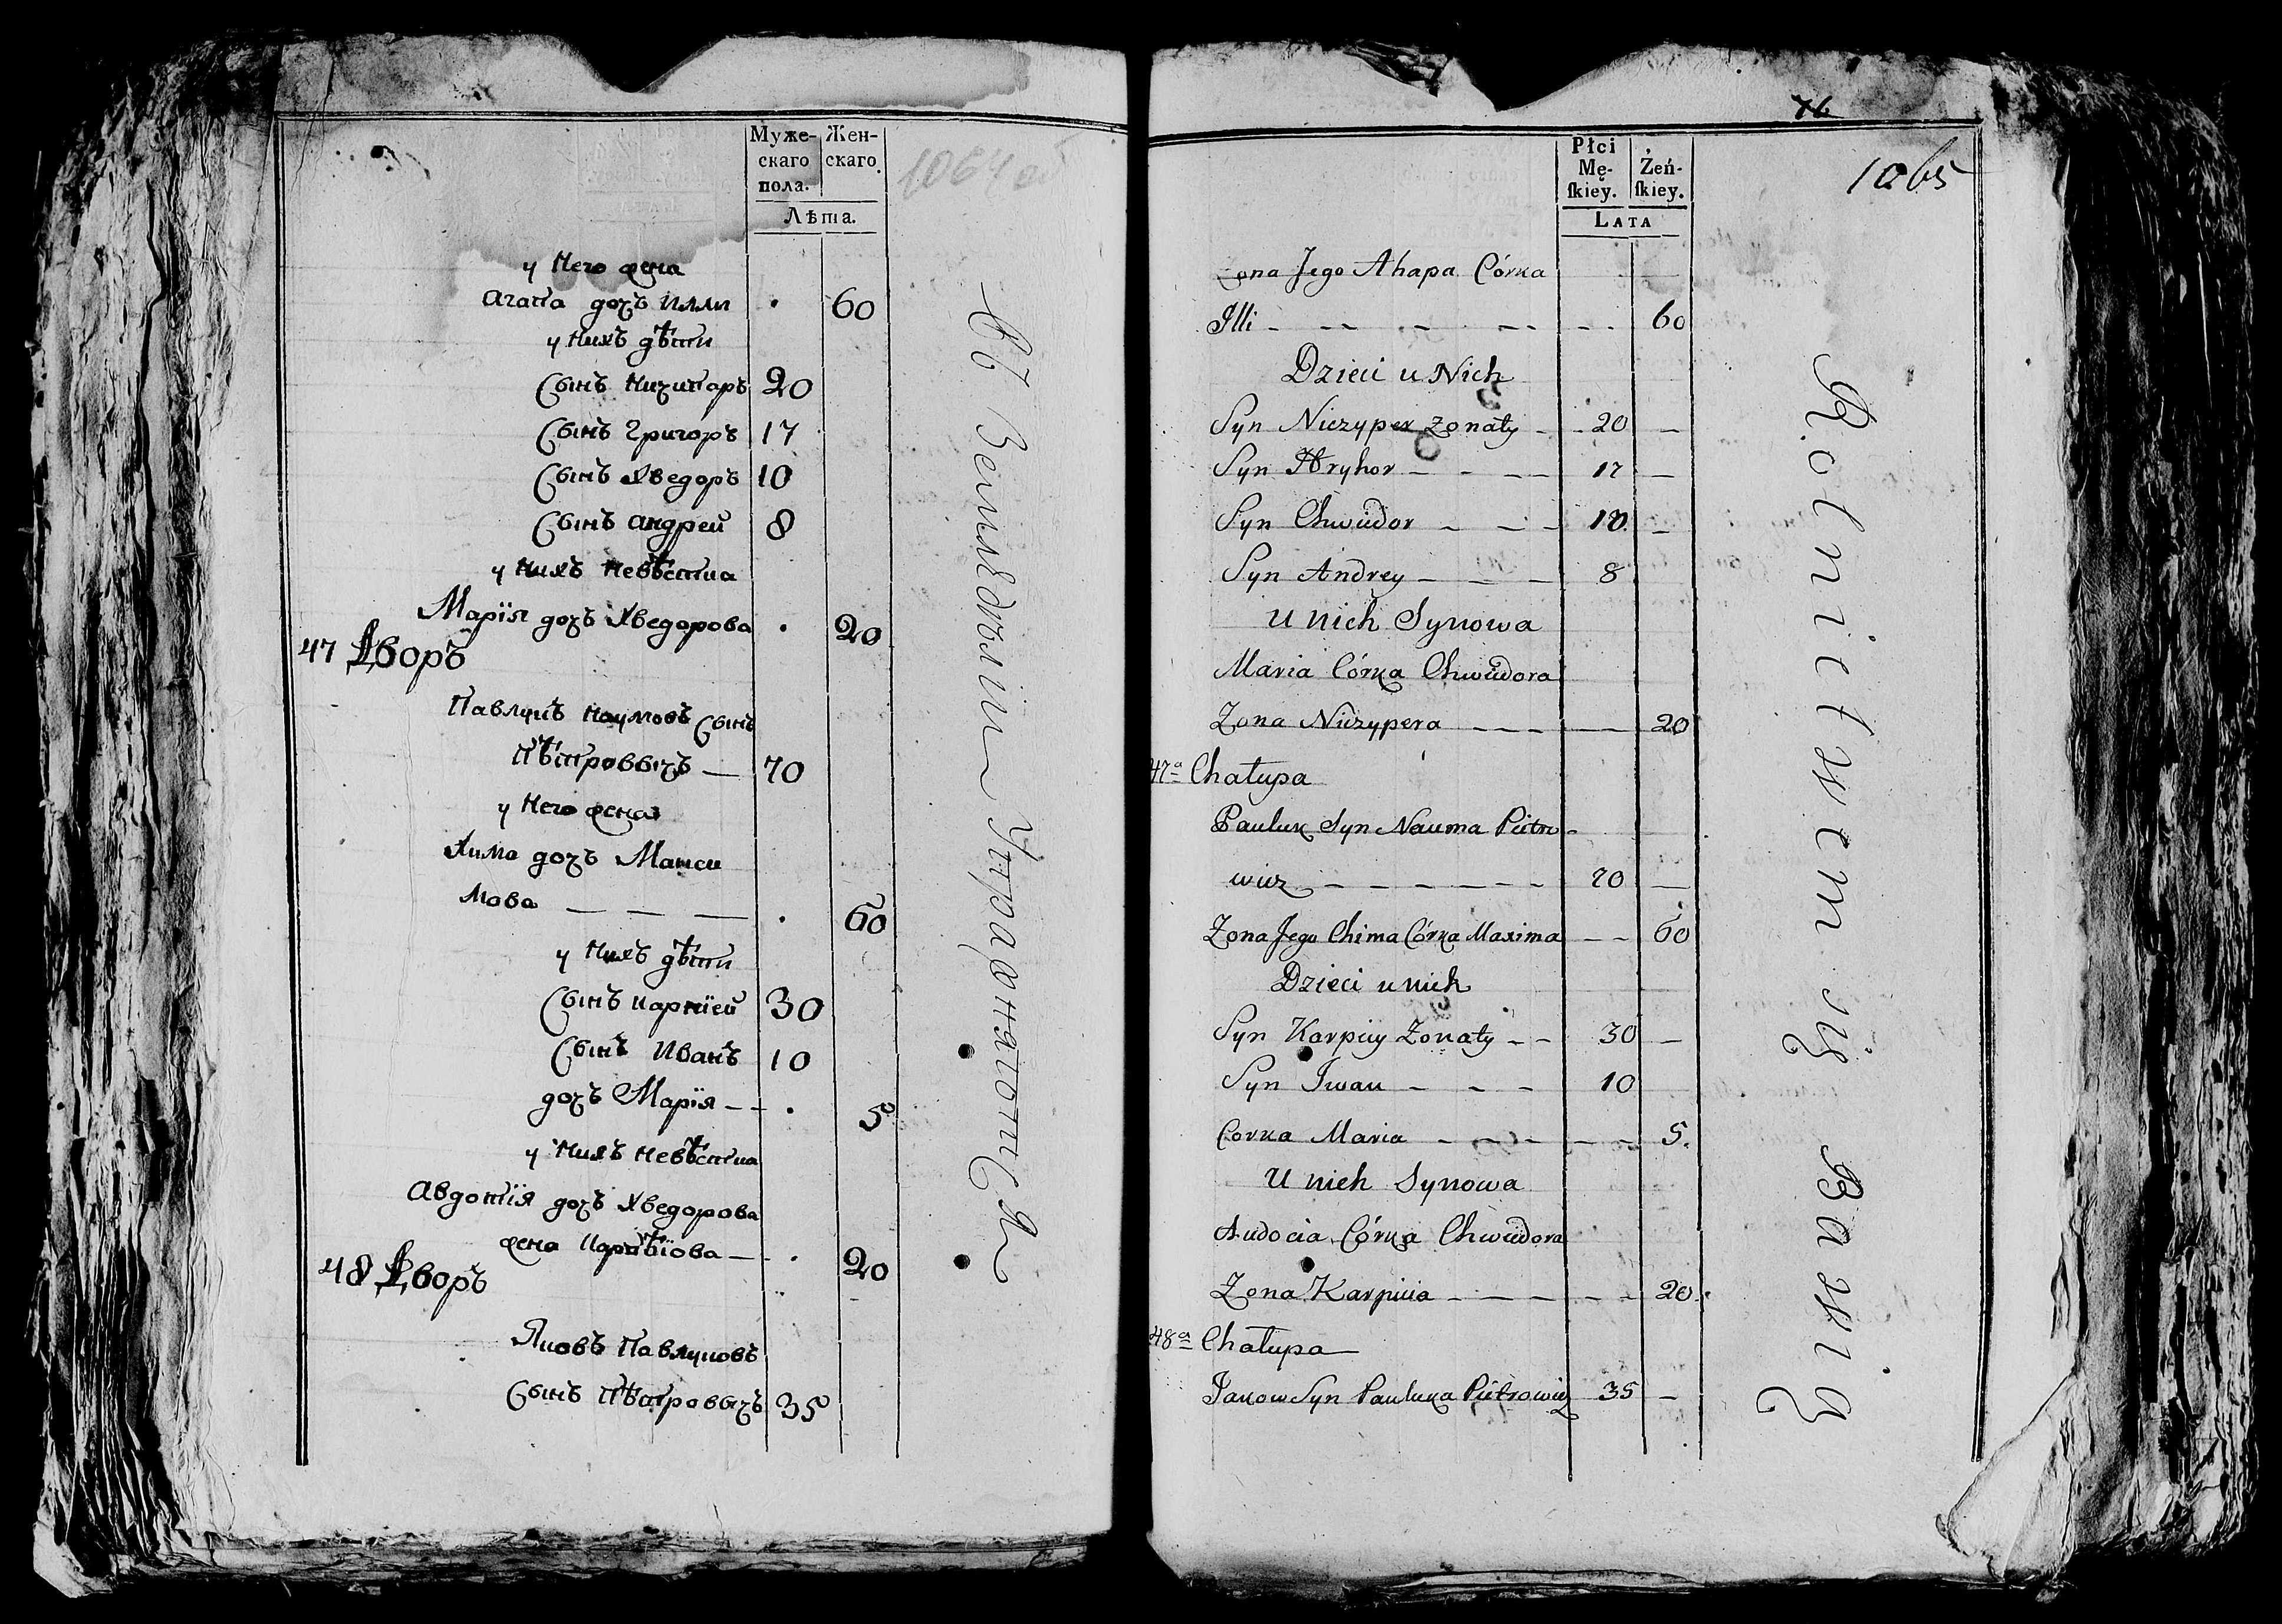 Муже-
скаго
пола.
Жен-
скаго.
Лѣта.
1064 об
у него жена
Агапа дочь Илли . 60
у нихъ дѣти
Сынъ Ничипаръ 20
Сынъ Григоръ 17
Сынъ Хведоръ 10
Сынъ Андрей 8
у нихъ невѣстка
Марїя дочь Хведорова . 20
47 Дворъ
Павлукъ Наумовъ Сынъ
Пѣтровычъ — 70
у него жена
Хима дочь Макси
мова — — — . 60
у нихъ дѣти
Сынъ Карпїей 30
Сынъ Иванъ 10
дочь Марїя — — . 5
у нихъ невѣстка
Авдотїя дочь Хведорова
жена Карпѣїова — . 20
48 Дворъ
Яковъ Павлуковъ
Сынъ Пѣтровычъ 35
въ Земледѣлїи Упражняютъся
Płci
Mę-
ſkiey.
Żeń-
ſkiey.
LATA
76
1065
Zona Jego Ahapa Córka
Illi — — — — — — — 60
Dzieci u Nich
Syn Niczyper Zonaty — — 20 —
Syn Hryhor — — — — 17 —
Syn Chwiedor — — — 10. —
Syn Andrey — — — 8
U nich Synowa
Maria Córka Chwiedora
Zona Niczypera — — — — 20
47ª Chałupa
Pauluk Syn Nauma Pietro-
wicz — — — — — — 70 —
Zona Jego Chima Córka Maxima — — 60
Dzieci u nich
Syn Karpiey Zonaty — — 30 —
Syn Iwan — — — 10
Corka Maria — — — — — 5.
U nich Synowa
Audocia Córka Chwiedora
Zona Karpieia — — — — — 20.
48ª Chałupa
Jakow Syn Pauluka Pietrowicz 35 —
Rolnictwem się Bawią